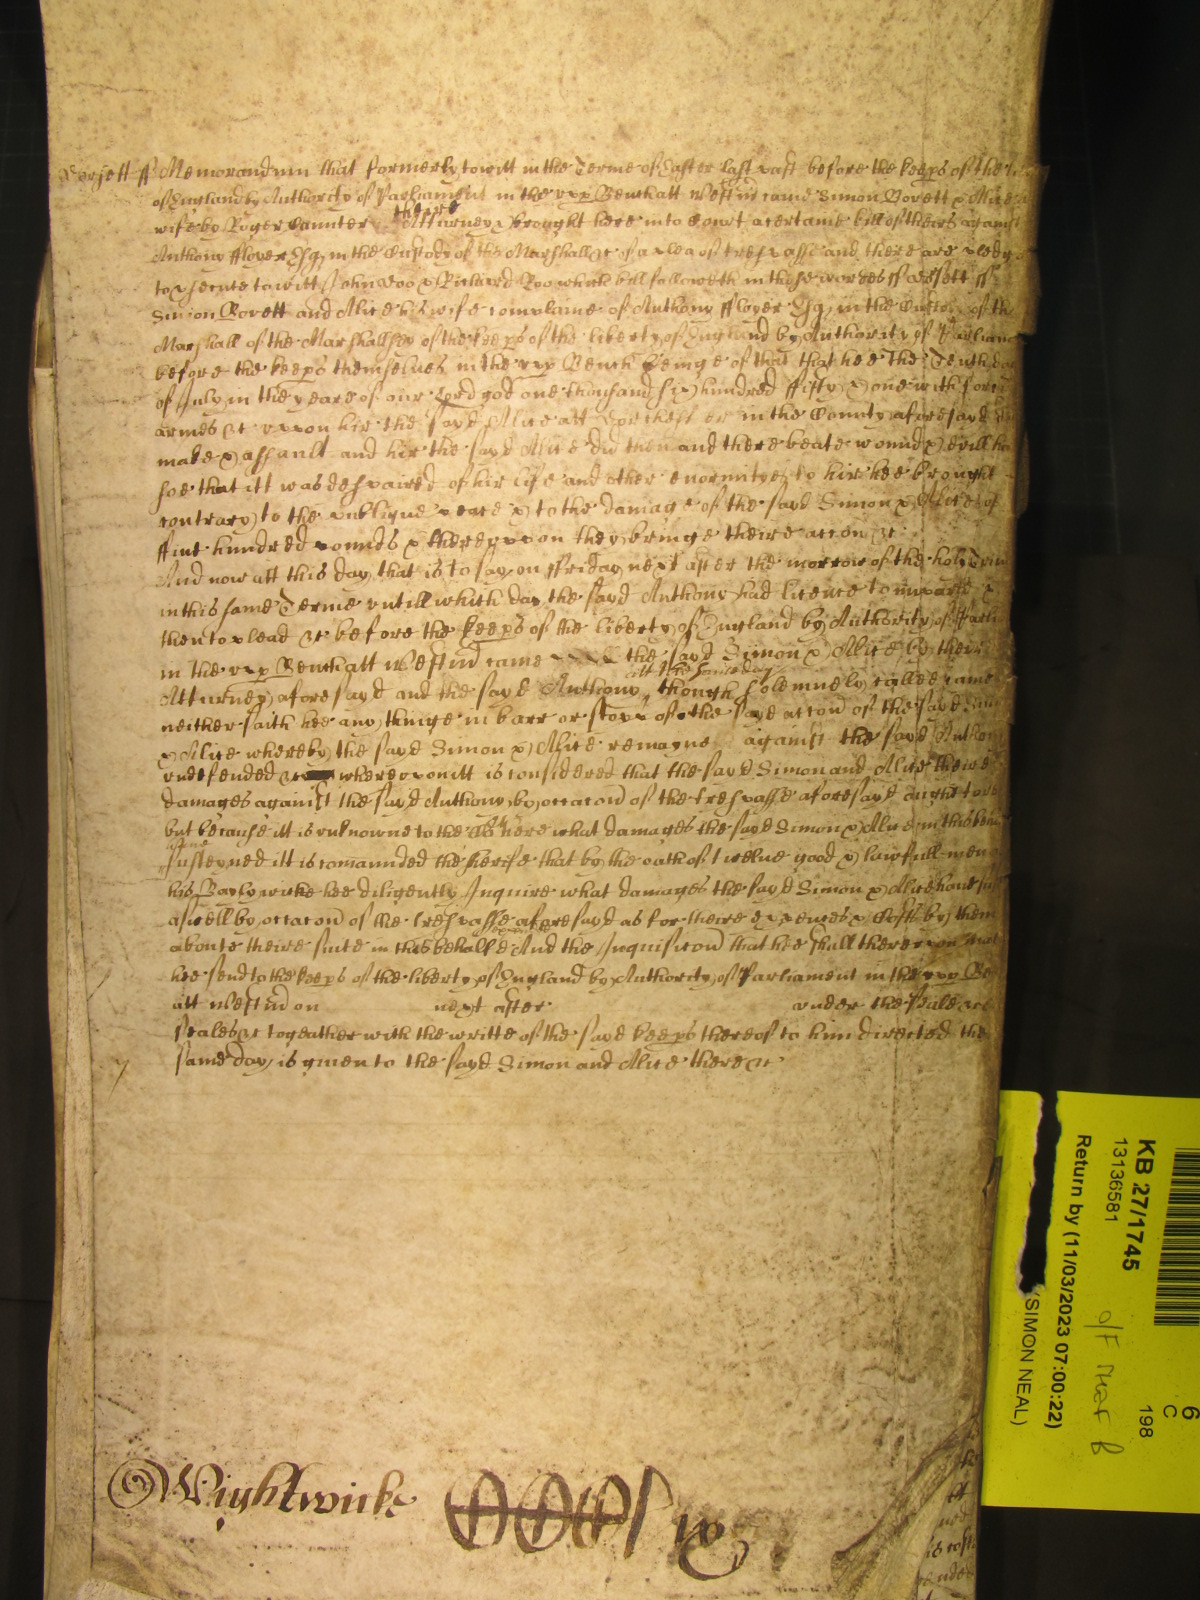 Dorsett ss Memorandum that formerly towitt in the Terme of Easter last past before the keeps of the
of England by Authority of Parliament in the vpp Bench att Westm came Simon Bovett & Alice
wife by Roger Caunter theire Atturney & brought here into Court a certaine bill of theirs against
Anthony ffloyer Esq in the Custody of the Marshall &c of a plea of trespasse and there are pledg
to psecute towitt John Doo & Richard Roo which bill followeth in these wordes ss Dorsett ss
Simon Bovett and Alice his wife complaine of Anthony ffloyer Esq in the Custody of th
Marshall of the Marshallsey of the keeps of the liberty of England by Authority of Parliam
before the keeps themselves in the vpp Bench beinge of that that hee the Tenth day
of July in the yeare of our Lord god one thousand six hundred fifty & one with force
armes &c vppon hir the sayd Alice att in the County aforesayd
make & assault and hir the sayd Alice did then and there beate wound & evill
soe that itt was despaired of hir life and other enormityes to hir hee brought
contrary to the publique peace & to the damage of the sayd Simon & Alice of
ffive hundred pounds & thereuppon they bringe theire accon &c
And now att this day that is to say on ffriday next after the morrow of the holy
in this same Terme vntill which day the sayd Anthony had licence to imparle &
then to plead &c before the keeps of the liberty of England by Authority of Parli
in the vpp Bench att Westm came the sayd Simon & Alice by their
Atturney aforesayd and the sayd Anthony att the same day though solemnely called came
neither saith hee any thinge in barr or stopp of the sayd accon of the sayd Sim
& Alice whereby the sayd Simon & Alice remayne against the sayd Anthon
vndefended &c whereuppon itt is considered that the sayd Simon and Alice theire
damages against the sayd Anthony by occacon of the trespasse aforesayd ought to
but because itt is vnknowne to the Court here what damages the sayd Simon & Alice in this
haue susteyned itt is comaunded the sherife that by the oath of twelue good & lawfull men
his Baylywicke hee diligently Inquire what damages the sayd Simon & Alice haue
aswell by occacon of the trespasse aforesayd as for theire expences & Costs by them
aboute theire suite in this behalfe And the Inquisicon that hee shall thereuppon
hee send to the keeps of the liberty of England by Authority of Parliament in the vpp
att Westm on next after vnder the Seale &c
seales &c togeather with the writte of the sayd keeps thereof to him directed the
same day is given to the sayd Simon and Alice there &c
Wightwicke
KB 27/1745
13136581
Return by (11/03/2023 07:00:22)
(SIMON NEAL)
6
C
198